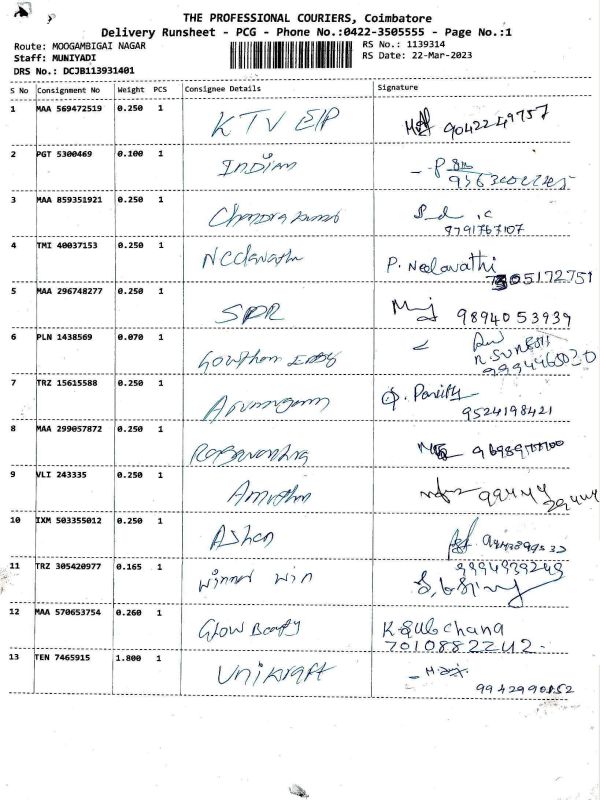 THE PROFESSIONAL COURIERS, Coimbatore
Delivery Runsheet - PCG - Phone No.:0422-3505555 - Page No.:1
Route: MOOGAMBIGAI NAGAR RS No.: 1139314
Staff: MUNIYADI RS Date: 22-Mar-2023
DRS No.: DCJB113931401
S No Consignment No Weight PCS Consignee Details Signature
1 MAA 569472519 0.250 1 KTV E/P
2 PGT 5300469 0.100 1 Indian
3 MAA 859351921 0.250 1 8791767107
4 TMI 40037153 0.250 1 P. Neelavathi
05172751
5 MAA 296748277 0.250 1 SDR 9894053939
6 PLN 1438569 0.070 1 Gowthem
N. SURESH
9994465030
7 TRZ 15615588 0.250 1 Arumugam
9524198421
8 MAA 299057872 0.250 1
9 VLI 243335 0.250 1 Amutha 99444
29444
10 IXM 503355012 0.250 1 Ashen
11 TRZ 305420977 0.165 1 Winner Win 9994939249
12 MAA 570653754 0.260 1 Glow K Sub Chana
7010882242.
13 TEN 7465915 1.800 1 Unikraft
9942990852